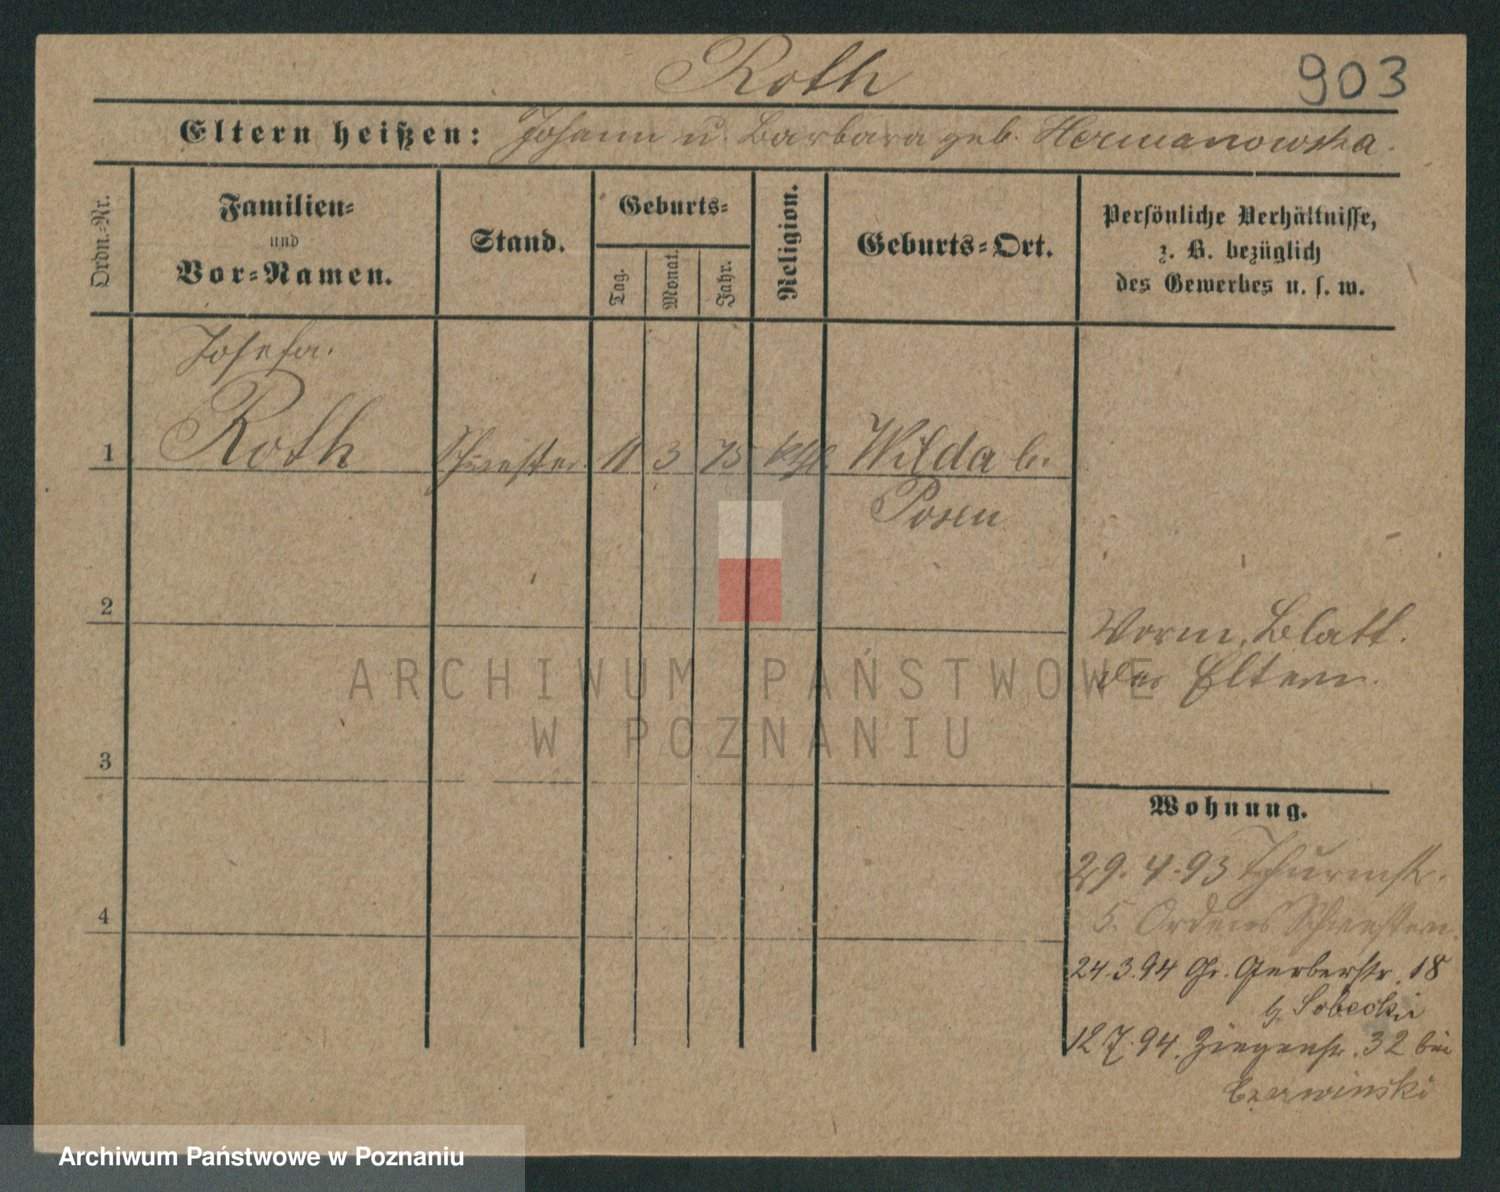 Roth
903
Eltern heißen: Johann u. Barbara geb. Hermanowska.
Ordn.-Nr.
Familien-
und
Vor-Namen.
Stand.
Geburts-
Tag.
Monat.
Jahr.
Religion.
Geburts-Ort.
Persönliche Verhältnisse,
z. B. bezüglich
des Gewerbes u. s. w.
Josefa.
1 Roth Schwester 11 3 75 kth Wilda b.
Posen
2
Vorm. Blatt.
der Eltern.
3
Wohnung.
29.4.93 Thurmstr.
5. Ordens Schwestern.
4
24.3.94 Gr. Gerberstr. 18
b Sobecki
12.7.94. Ziegenstr. 32 bei
Czerwinski
ARCHIWUM PAŃSTWOWE
W POZNANIU
Archiwum Państwowe w Poznaniu